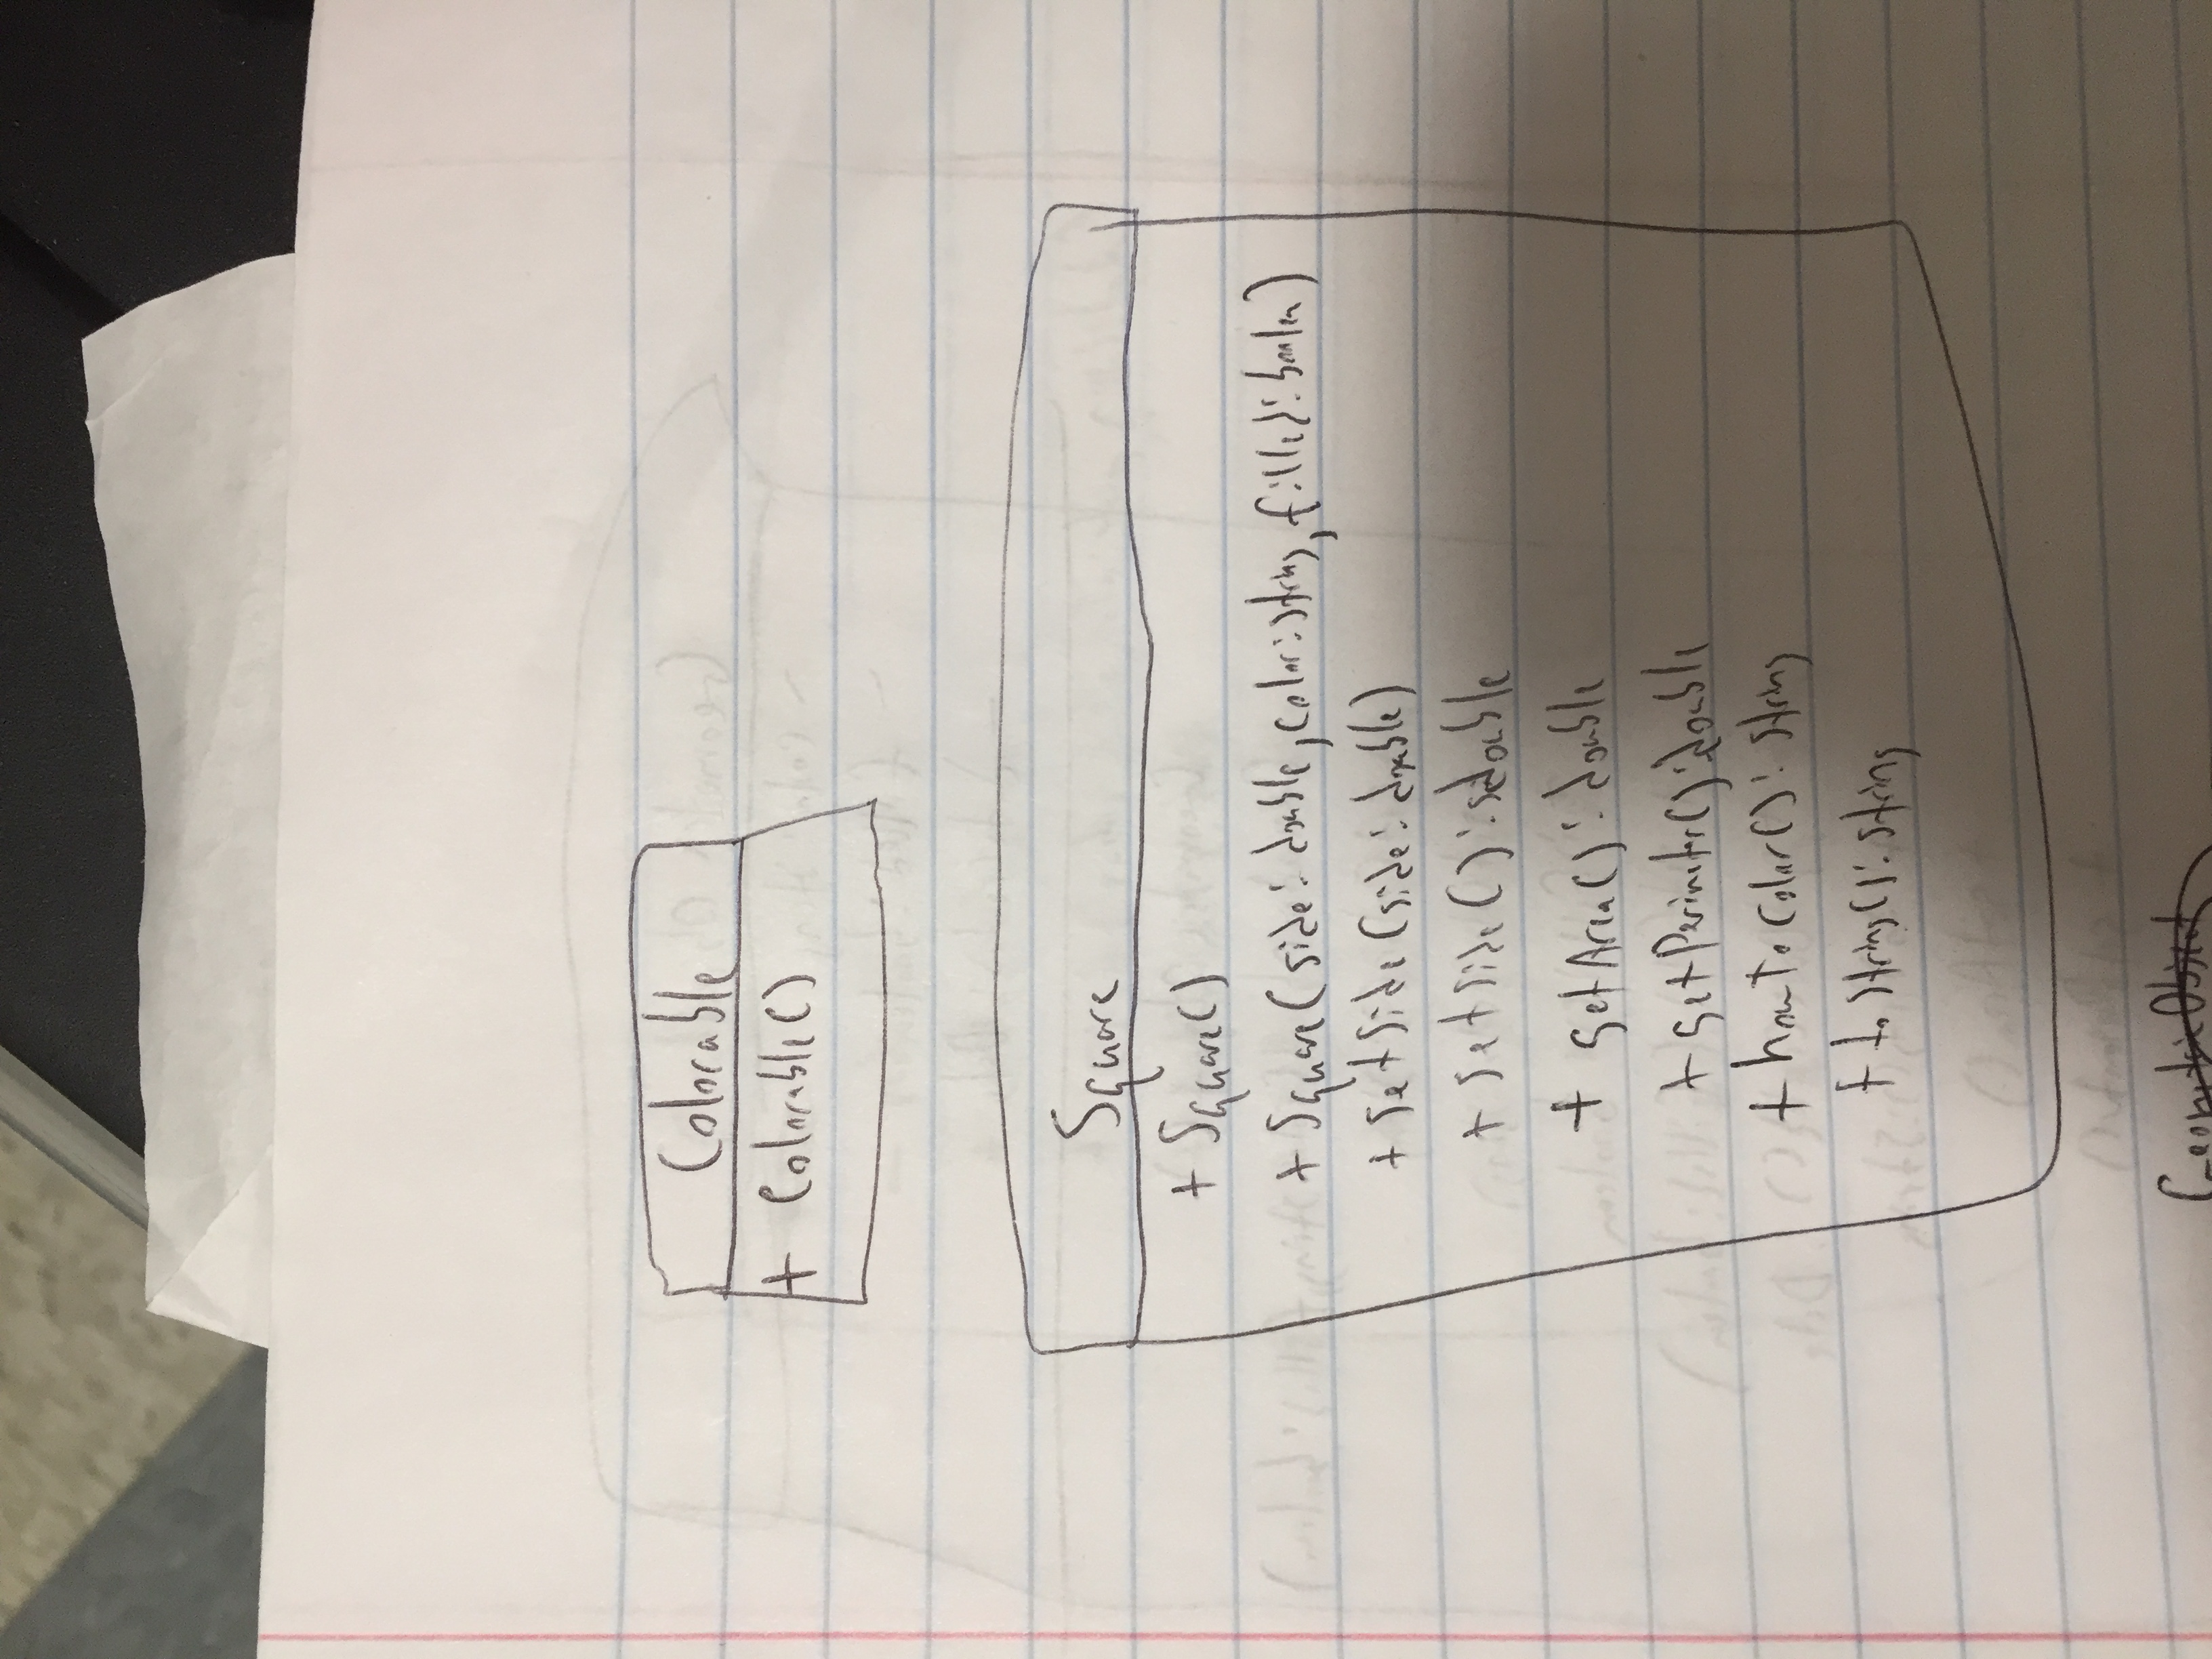 Colorable
+ Colorable()
Square
+ Square()
+ Square(side: double, color: string, filled: boolen)
+ setSide(side: double)
+ setSide(): double
+ getArea(): double
+ getPerimeter(): double
+ howToColor(): String
+ toString(): string
GeometricObject